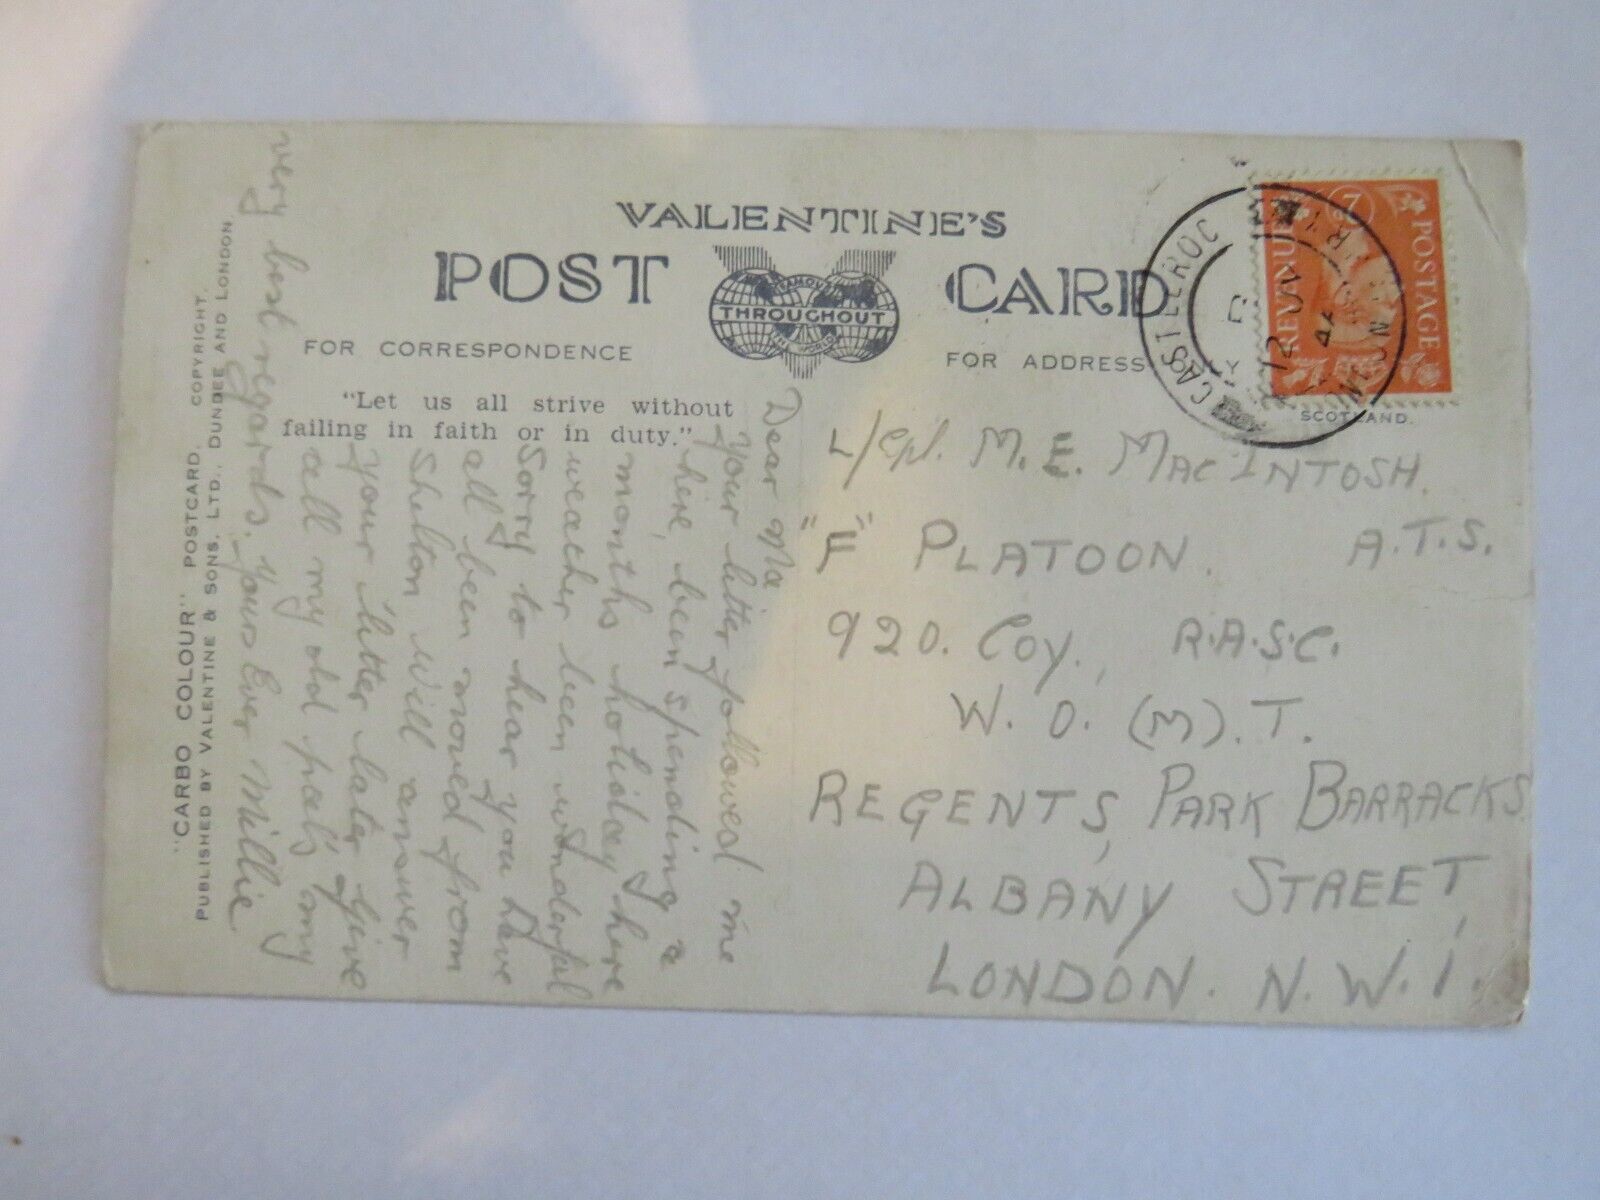 VALENTINE'S
POST CARD
FAMOUS
THROUGHOUT
THE WORLD
FOR CORRESPONDENCE
FOR ADDRESS ONLY
"Let us all strive without
failing in faith or in duty."
POSTAGE
REVENUE
2D
SCOTLAND.
12 NO
47
L/Cpl. M. E. MACINTOSH.
"F" PLATOON. A.T.S.
920. Coy., R.A.S.C.
W. O. (M). T.
REGENTS PARK BARRACKS
ALBANY STREET,
LONDON. N.W.1.
Dear Ma
Your letter followed me
here, been spending a
months holiday here
weather been wonderful
Sorry to hear you have
all been moved from
Shelton will answer
your letter later, Give
all my old pals my
very best regards. Yours Ever Millie
"CARBO COLOUR" POSTCARD. COPYRIGHT.
PUBLISHED BY VALENTINE & SONS, LTD., DUNDEE AND LONDON